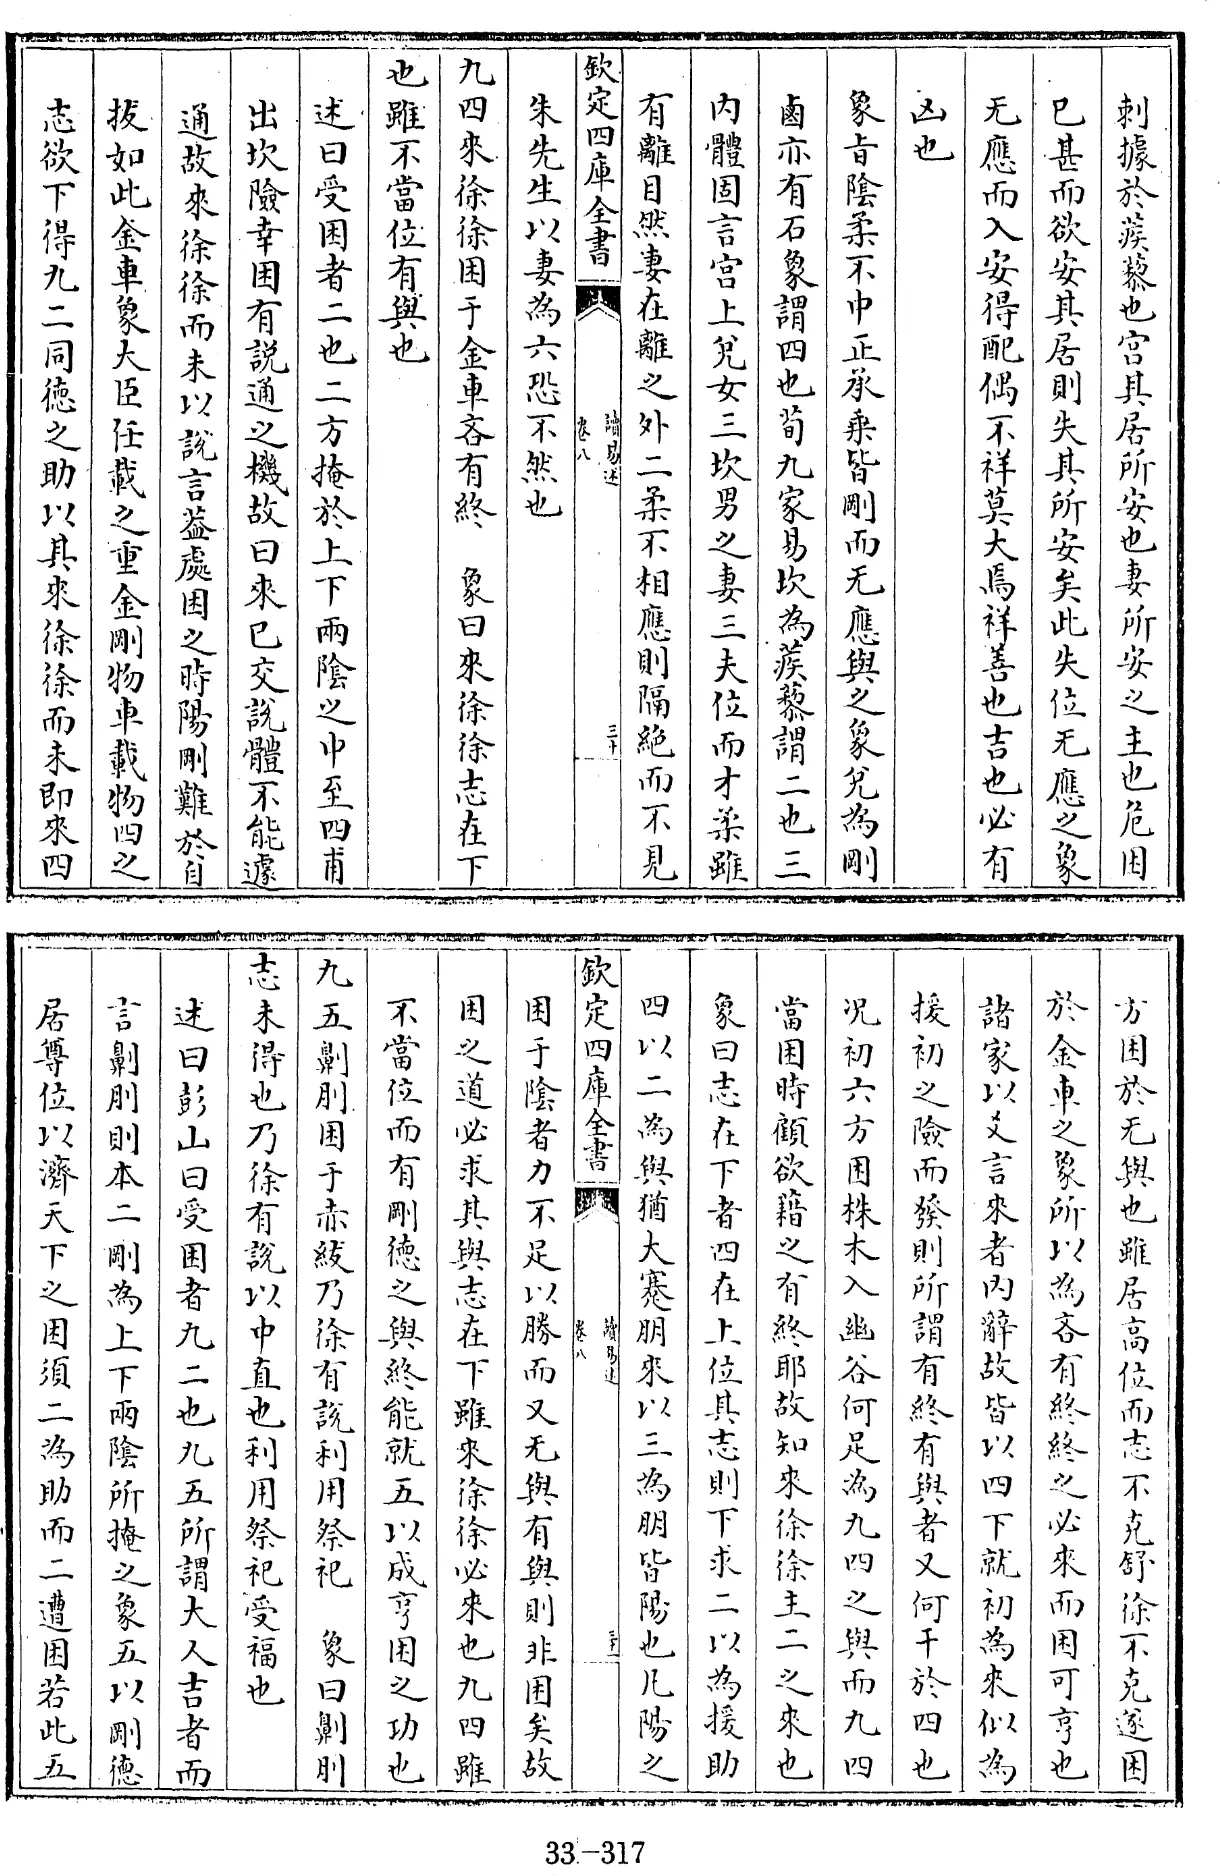 刺據於蒺藜也宫其居所安也妻所安之主也危困
已甚而欲安其居則失其所安矣此失位无應之象
无應而入安得配偶不祥莫大焉祥善也吉也必有
凶也
象旨陰柔不中正承乗皆剛而无應與之象兌為剛
鹵亦有石象謂四也荀九家易坎為蒺藜謂二也三
内體固言宫上兌女三坎男之妻三夫位而才柔雖
有離目然妻在離之外二柔不相應則隔絶而不見
欽定四庫全書
讀易述
卷八
三十
朱先生以妻為六恐不然也
九四來徐徐困于金車吝有終 象曰來徐徐志在下
也雖不當位有與也
述曰受困者二也二方掩於上下兩陰之中至四甫
出坎險幸困有説通之機故曰來已交説體不能遽
通故來徐徐而未以説言葢處困之時陽剛難於自
拔如此金車象大臣任載之重金剛物車載物四之
志欲下得九二同徳之助以其來徐徐而未即來四
方困於无與也雖居髙位而志不克舒徐不克遂困
於金車之象所以為吝有終終之必來而困可亨也
諸家以爻言來者内辭故皆以四下就初為來似為
援初之險而發則所謂有終有與者又何干於四也
况初六方困株木入幽谷何足為九四之與而九四
當困時顧欲藉之有終耶故知來徐徐主二之來也
象曰志在下者四在上位其志則下求二以為援助
四以二為與猶大蹇朋來以三為朋皆陽也凡陽之
欽定四庫全書
讀易述
卷八
三十一
困于陰者力不足以勝而又无與有與則非困矣故
困之道必求其與志在下雖來徐徐必來也九四雖
不當位而有剛徳之與終能就五以成亨困之功也
九五劓刖困于赤紱乃徐有説利用祭祀 象曰劓刖
志未得也乃徐有説以中直也利用祭祀受福也
述曰彭山曰受困者九二也九五所謂大人吉者而
言劓刖則本二剛為上下兩陰所掩之象五以剛徳
居尊位以濟天下之困須二為助而二遭困若此五
33-317